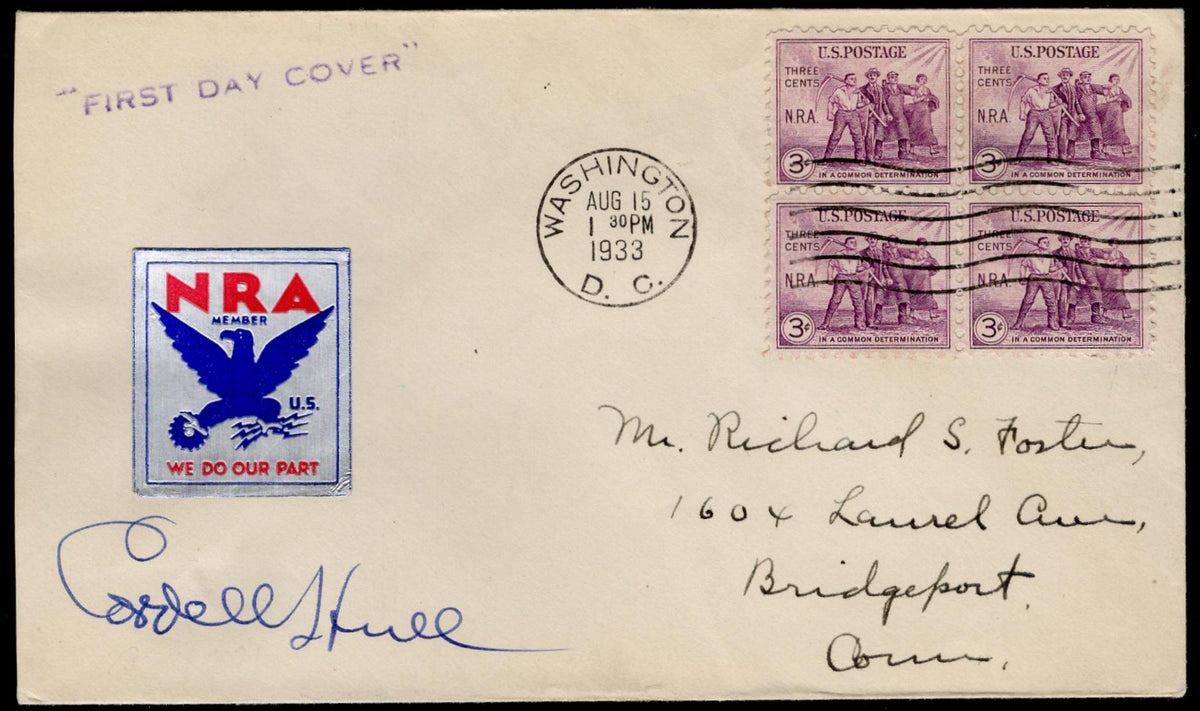 "FIRST DAY COVER"
U.S. POSTAGE
THREE
CENTS
N.R.A.
3¢
IN A COMMON DETERMINATION
U.S. POSTAGE
THREE
CENTS
N.R.A.
3¢
IN A COMMON DETERMINATION
U.S. POSTAGE
THREE
CENTS
N.R.A.
3¢
IN A COMMON DETERMINATION
U.S. POSTAGE
THREE
CENTS
N.R.A.
3¢
IN A COMMON DETERMINATION
WASHINGTON
AUG 15
1 30PM
1933
D. C.
NRA
MEMBER
U.S.
WE DO OUR PART
Cordell Hull
Mr. Richard S. Foster,
1604 Laurel Ave,
Bridgeport.
Conn.